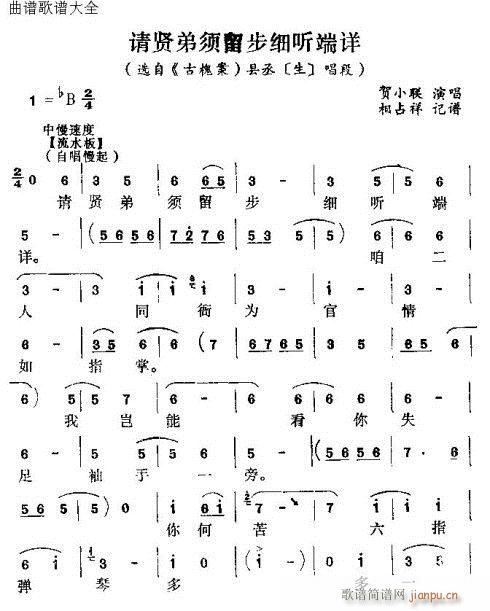 曲谱歌谱大全
请贤弟须留步细听端详
(选自《古槐案》县丞〔生〕唱段)
1=♭B 2/4
贺小联 演唱
相占祥 记谱
中慢速度
【流水板】
(自唱慢起)
2/4 0 6 | 3 5 | 6 65 | 3 - | 3 5 | 5 6 |
请 贤 弟 须 留 步 细 听 端
5 - | (5 65 65 | 7 27 6 | 5 65 65) | 6 6 |
详。 咱 二
3 - 3 | i i | i | 3 - | 3 3 |
人 同 衙 为 官 情
6 - | 35 | 6 6 | (7 | 67 65 | 3 5 |
如 指 掌。
6) 5 | 5 7 | 6 - | 6 7 | 7 5 |
我 岂 能 看 你 失
6 - | 5 5 | 6 - | (56 56 |
足 袖 于 一 旁。
56 56 | 5) | 0 i | i 6i | 7 - | i i |
你 何 苦 六 指
6 - | 6 | i - | i - | 3 |
弹 琴 多 多 一
歌谱简谱网
jianpu.cn